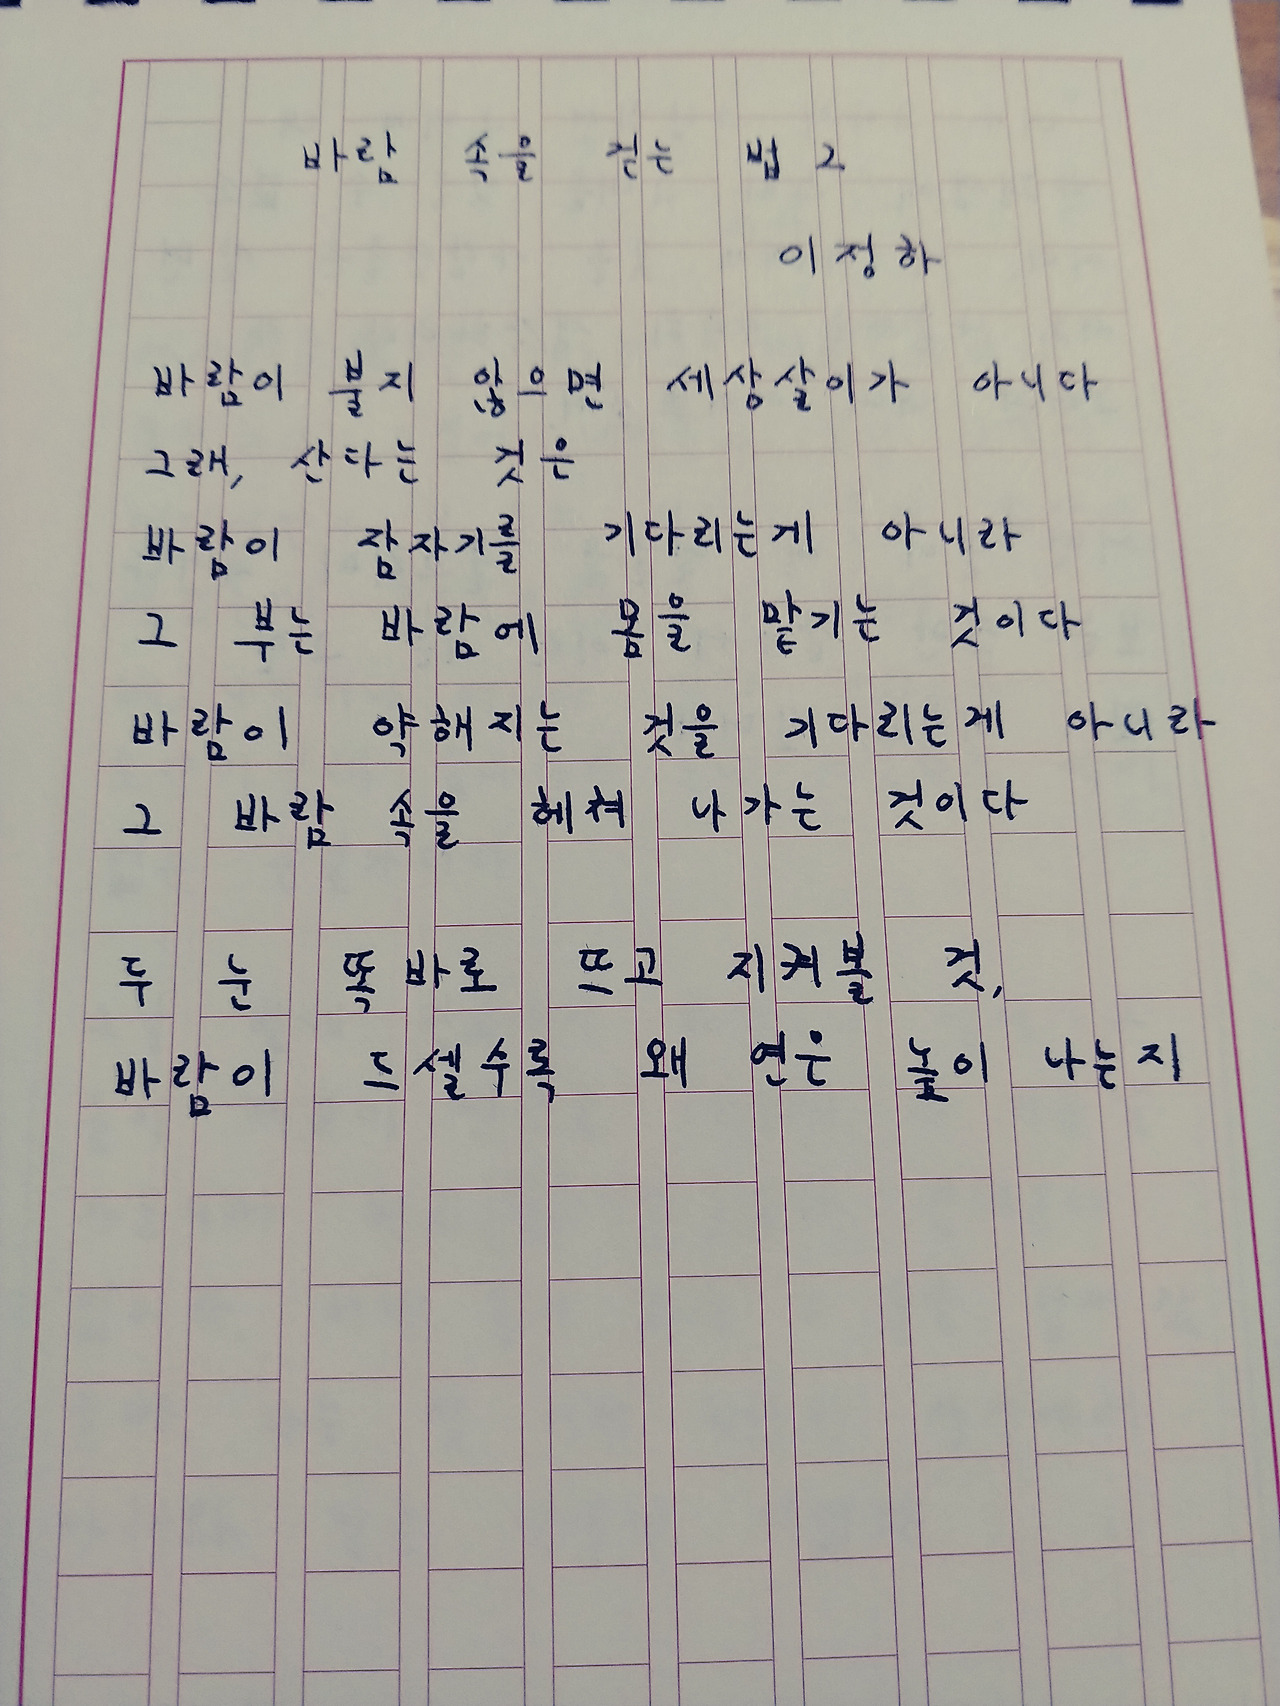 바람 속을 걷는 법 2
이정하
바람이 불지 않으면 세상살이가 아니다
그래, 산다는 것은
바람이 잠자기를 기다리는게 아니라
그 부는 바람에 몸을 맡기는 것이다
바람이 약해지는 것을 기다리는게 아니라
그 바람 속을 헤쳐 나가는 것이다
두 눈 똑바로 뜨고 지켜볼 것,
바람이 드셀수록 왜 연은 높이 나는지